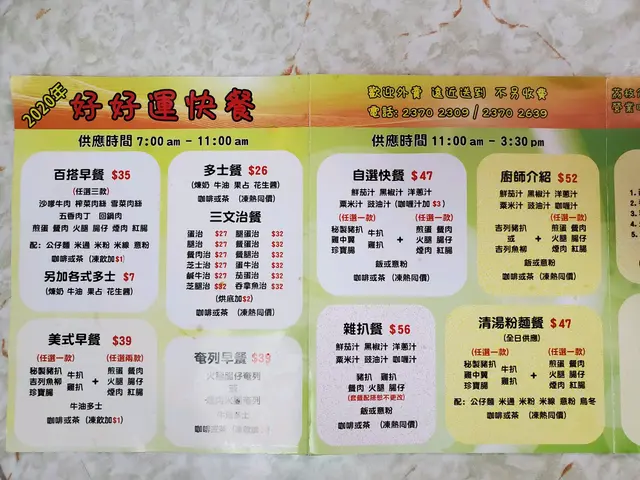 2020年
好好運快餐
歡迎外賣 遠近送到 不另收費
電話: 2370 2309 / 2370 2639
供應時間 7:00 am - 11:00 am
百搭早餐 $35
(任選三款)
沙嗲牛肉 榨菜肉絲 雪菜肉絲
五香肉丁 回鍋肉
煎蛋 餐肉 火腿 腸仔 煙肉 紅腸
配: 公仔麵 米通 米粉 米線 意粉
咖啡或茶 (凍飲加$1)
另加各式多士 $7
(煉奶 牛油 果占 花生醬)
多士餐 $26
(煉奶 牛油 果占 花生醬)
咖啡或茶 (凍熱同價)
三文治餐
蛋治 $27 腿蛋治 $32
腿治 $27 餐蛋治 $32
餐肉治 $27 餐腿治 $32
芝士治 $27 蛋牛治 $32
鹹牛治 $27 茄蛋治 $32
芝腿治 $32 吞拿魚治 $32
(烘底加$2)
咖啡或茶 (凍熱同價)
美式早餐 $39
(任選一款) (任選兩款)
秘製豬扒 牛扒
吉列魚柳 雞扒
珍寶腸
+
煎蛋 餐肉
火腿 腸仔
煙肉 紅腸
牛油多士
咖啡或茶 (凍飲加$1)
奄列早餐 $39
火腿腸仔奄列
或
牛油多士
咖啡或茶
供應時間 11:00 am - 3:30 pm
自選快餐 $47
鮮茄汁 黑椒汁 洋蔥汁
粟米汁 豉油汁 (咖喱汁加 $3)
(任選一款) (任選一款)
秘製豬扒 牛扒
雞中翼 雞扒
珍寶腸
+
煎蛋 餐肉
火腿 腸仔
煙肉 紅腸
飯或意粉
咖啡或茶 (凍熱同價)
廚師介紹 $52
鮮茄汁 黑椒汁 洋蔥汁
粟米汁 豉油汁 咖喱汁
(任選一款) (任選一款)
吉列豬扒
或
吉列魚柳
+
煎蛋 餐肉
火腿 腸仔
煙肉 紅腸
飯或意粉
咖啡或茶 (凍熱同價)
雜扒餐 $56
鮮茄汁 黑椒汁 洋蔥汁
粟米汁 豉油汁 咖喱汁
豬扒 雞扒
餐肉 火腿 腸仔
(套餐配搭恕不更改)
飯或意粉
咖啡或茶 (凍熱同價)
清湯粉麵餐 $47
(全日供應)
(任選一款) (任選一款)
秘製豬扒 牛扒
雞中翼 雞扒
珍寶腸
+
煎蛋 餐肉
火腿 腸仔
煙肉 紅腸
配: 公仔麵 米通 米粉 米線 意粉 烏冬
咖啡或茶 (凍熱同價)